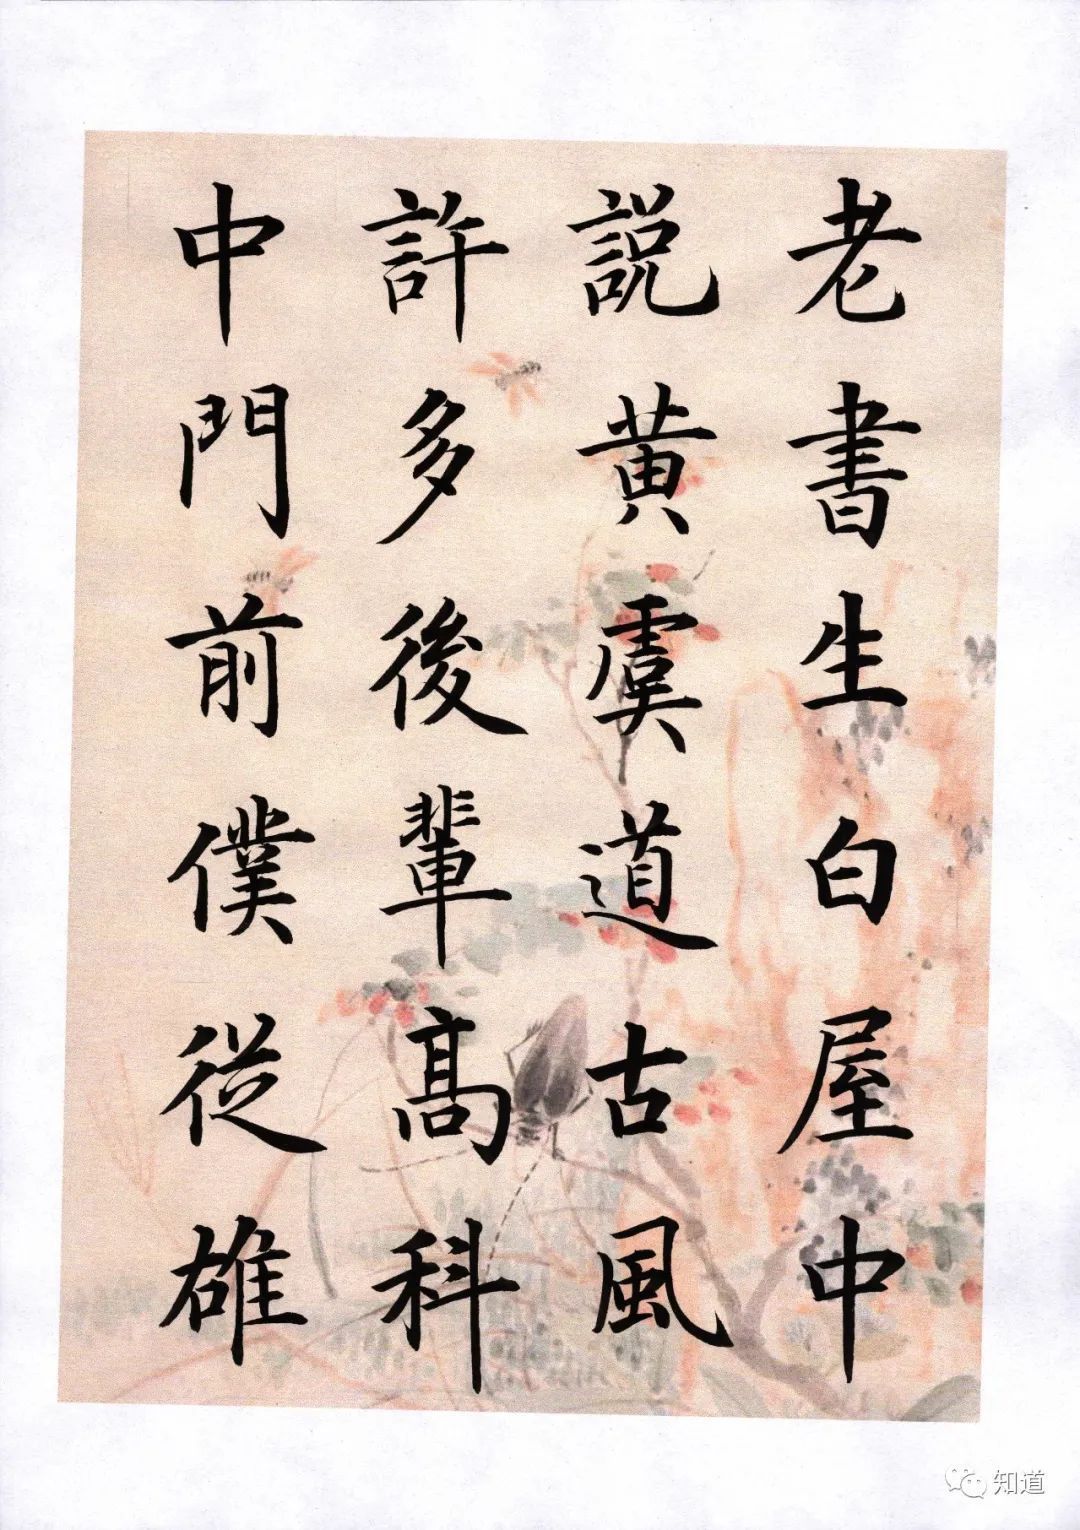 老書生白屋中
説黄虞道古風
許多後輩高科
中門前僕從雄
知道